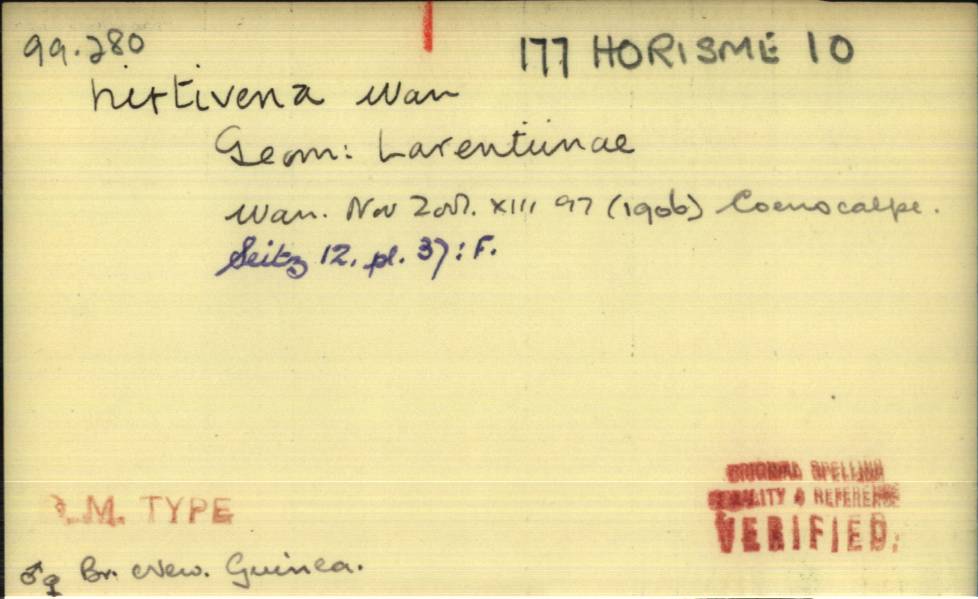 99.280
177 HORISME 10
hirtivena War
Geom: Larentiinae
Warr. Nov Zool. XIII 97 (1906) Coenocalpe.
Seitz 12. pl. 37: F.
B.M. TYPE
ORIGINAL SPELLING
LOCALITY & REFERENCE
VERIFIED.
♂♀ Br. New. Guinea.